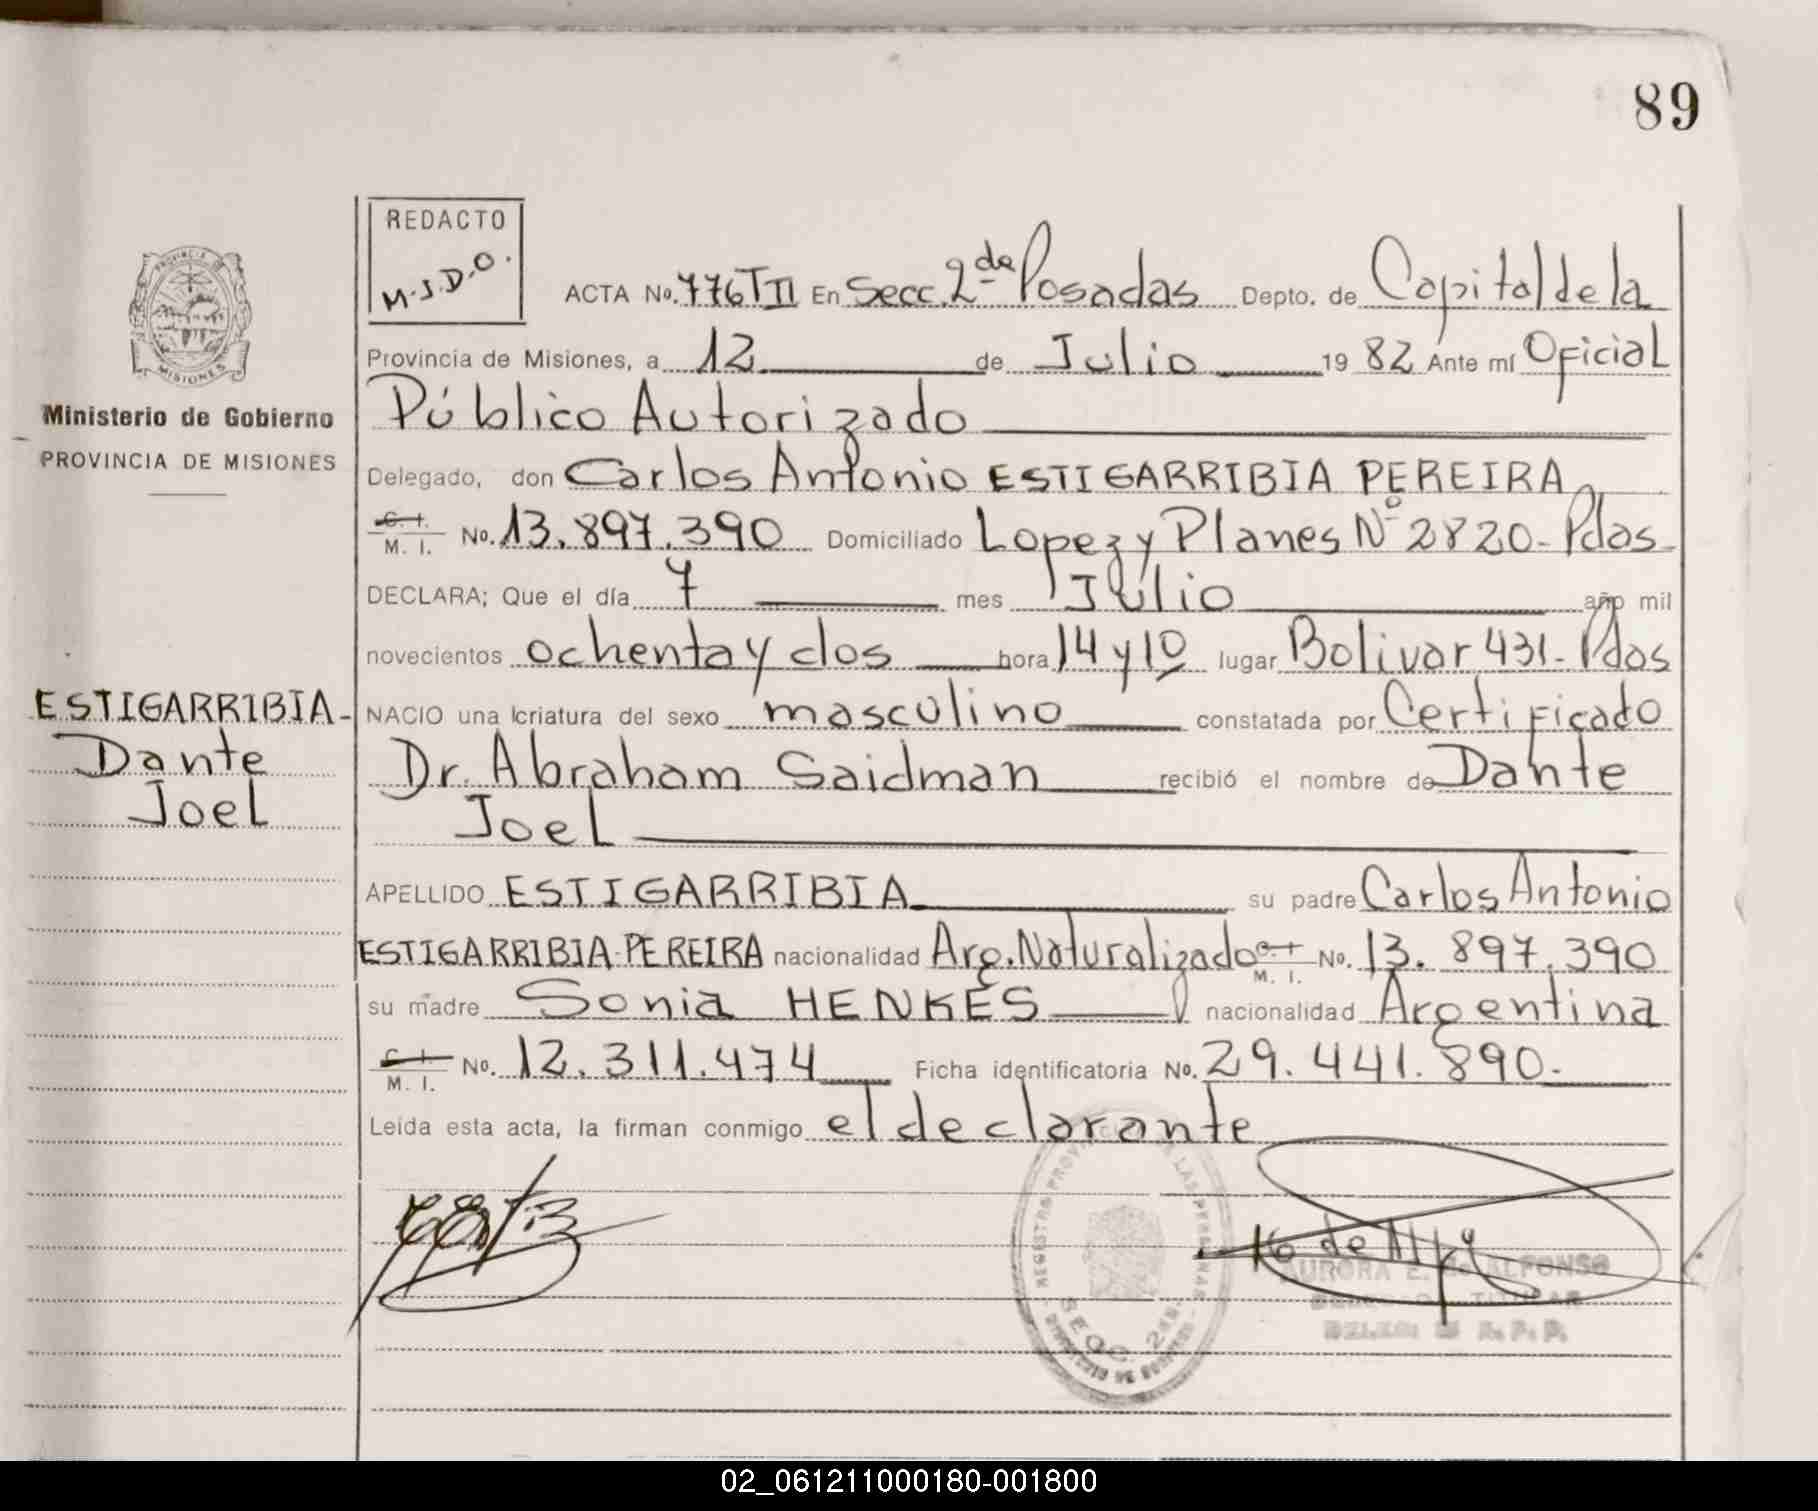 89
REDACTO
M.J.D.O.
PROVINCIA DE
MISIONES
Ministerio de Gobierno
PROVINCIA DE MISIONES
ACTA No. 776 T II En Secc. 2da Posadas Depto. de Capital de la
Provincia de Misiones, a 12 de Julio 19 82 Ante mí Oficial
Público Autorizado
Delegado, don Carlos Antonio ESTIGARRIBIA PEREIRA
C. I. M. I. No. 13.897.390 Domiciliado Lopez y Planes Nº 2820 - Pdas -
DECLARA; Que el día 7 mes Julio año mil
novecientos ochenta y dos hora 14 y 10 lugar Bolivar 431 - Pdas
NACIO una criatura del sexo masculino constatada por Certificado
Dr. Abraham Saidman recibió el nombre de Dante
Joel
ESTIGARRIBIA -
Dante
Joel
APELLIDO ESTIGARRIBIA su padre Carlos Antonio
ESTIGARRIBIA PEREIRA nacionalidad Arg. Naturalizado C. I. M. I. No. 13.897.390
su madre Sonia HENKES nacionalidad Argentina
C. I. M. I. No. 12.311.474 Ficha identificatoria No. 29.441.890.-
Leída esta acta, la firman conmigo el declarante
REGISTRO PROVINCIAL DE LAS PERSONAS
SECC. 2da.
AURORA E. de ALFONSO
TITULAR
R. P. P.
02_061211000180-001800